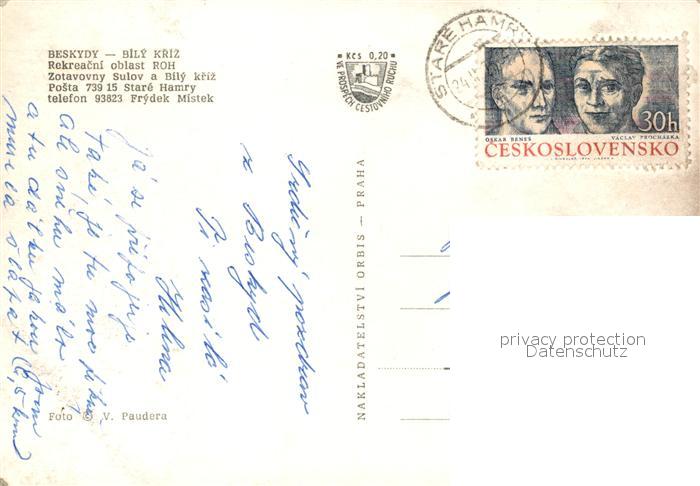 BESKYDY — BÍLÝ KŘÍŽ
Rekreační oblast ROH
Zotavovny Sulov a Bílý kříž
Pošta 739 15 Staré Hamry
telefon 93823 Frýdek Místek
Kčs 0,20
VE PROSPĚCH CESTOVNÍHO RUCHU
STARÉ HAMRY
30h
OSKAR BENEŠ
VÁCLAV PROCHÁZKA
ČESKOSLOVENSKO
Srdečný pozdrav
z Beskyd
Já se připojuji
také, je tu moc
ale sněhu málo
a tu dálku jsem
musela šlapat
NAKLADATELSTVÍ ORBIS — PRAHA
Foto © V. Paudera
privacy protection
Datenschutz